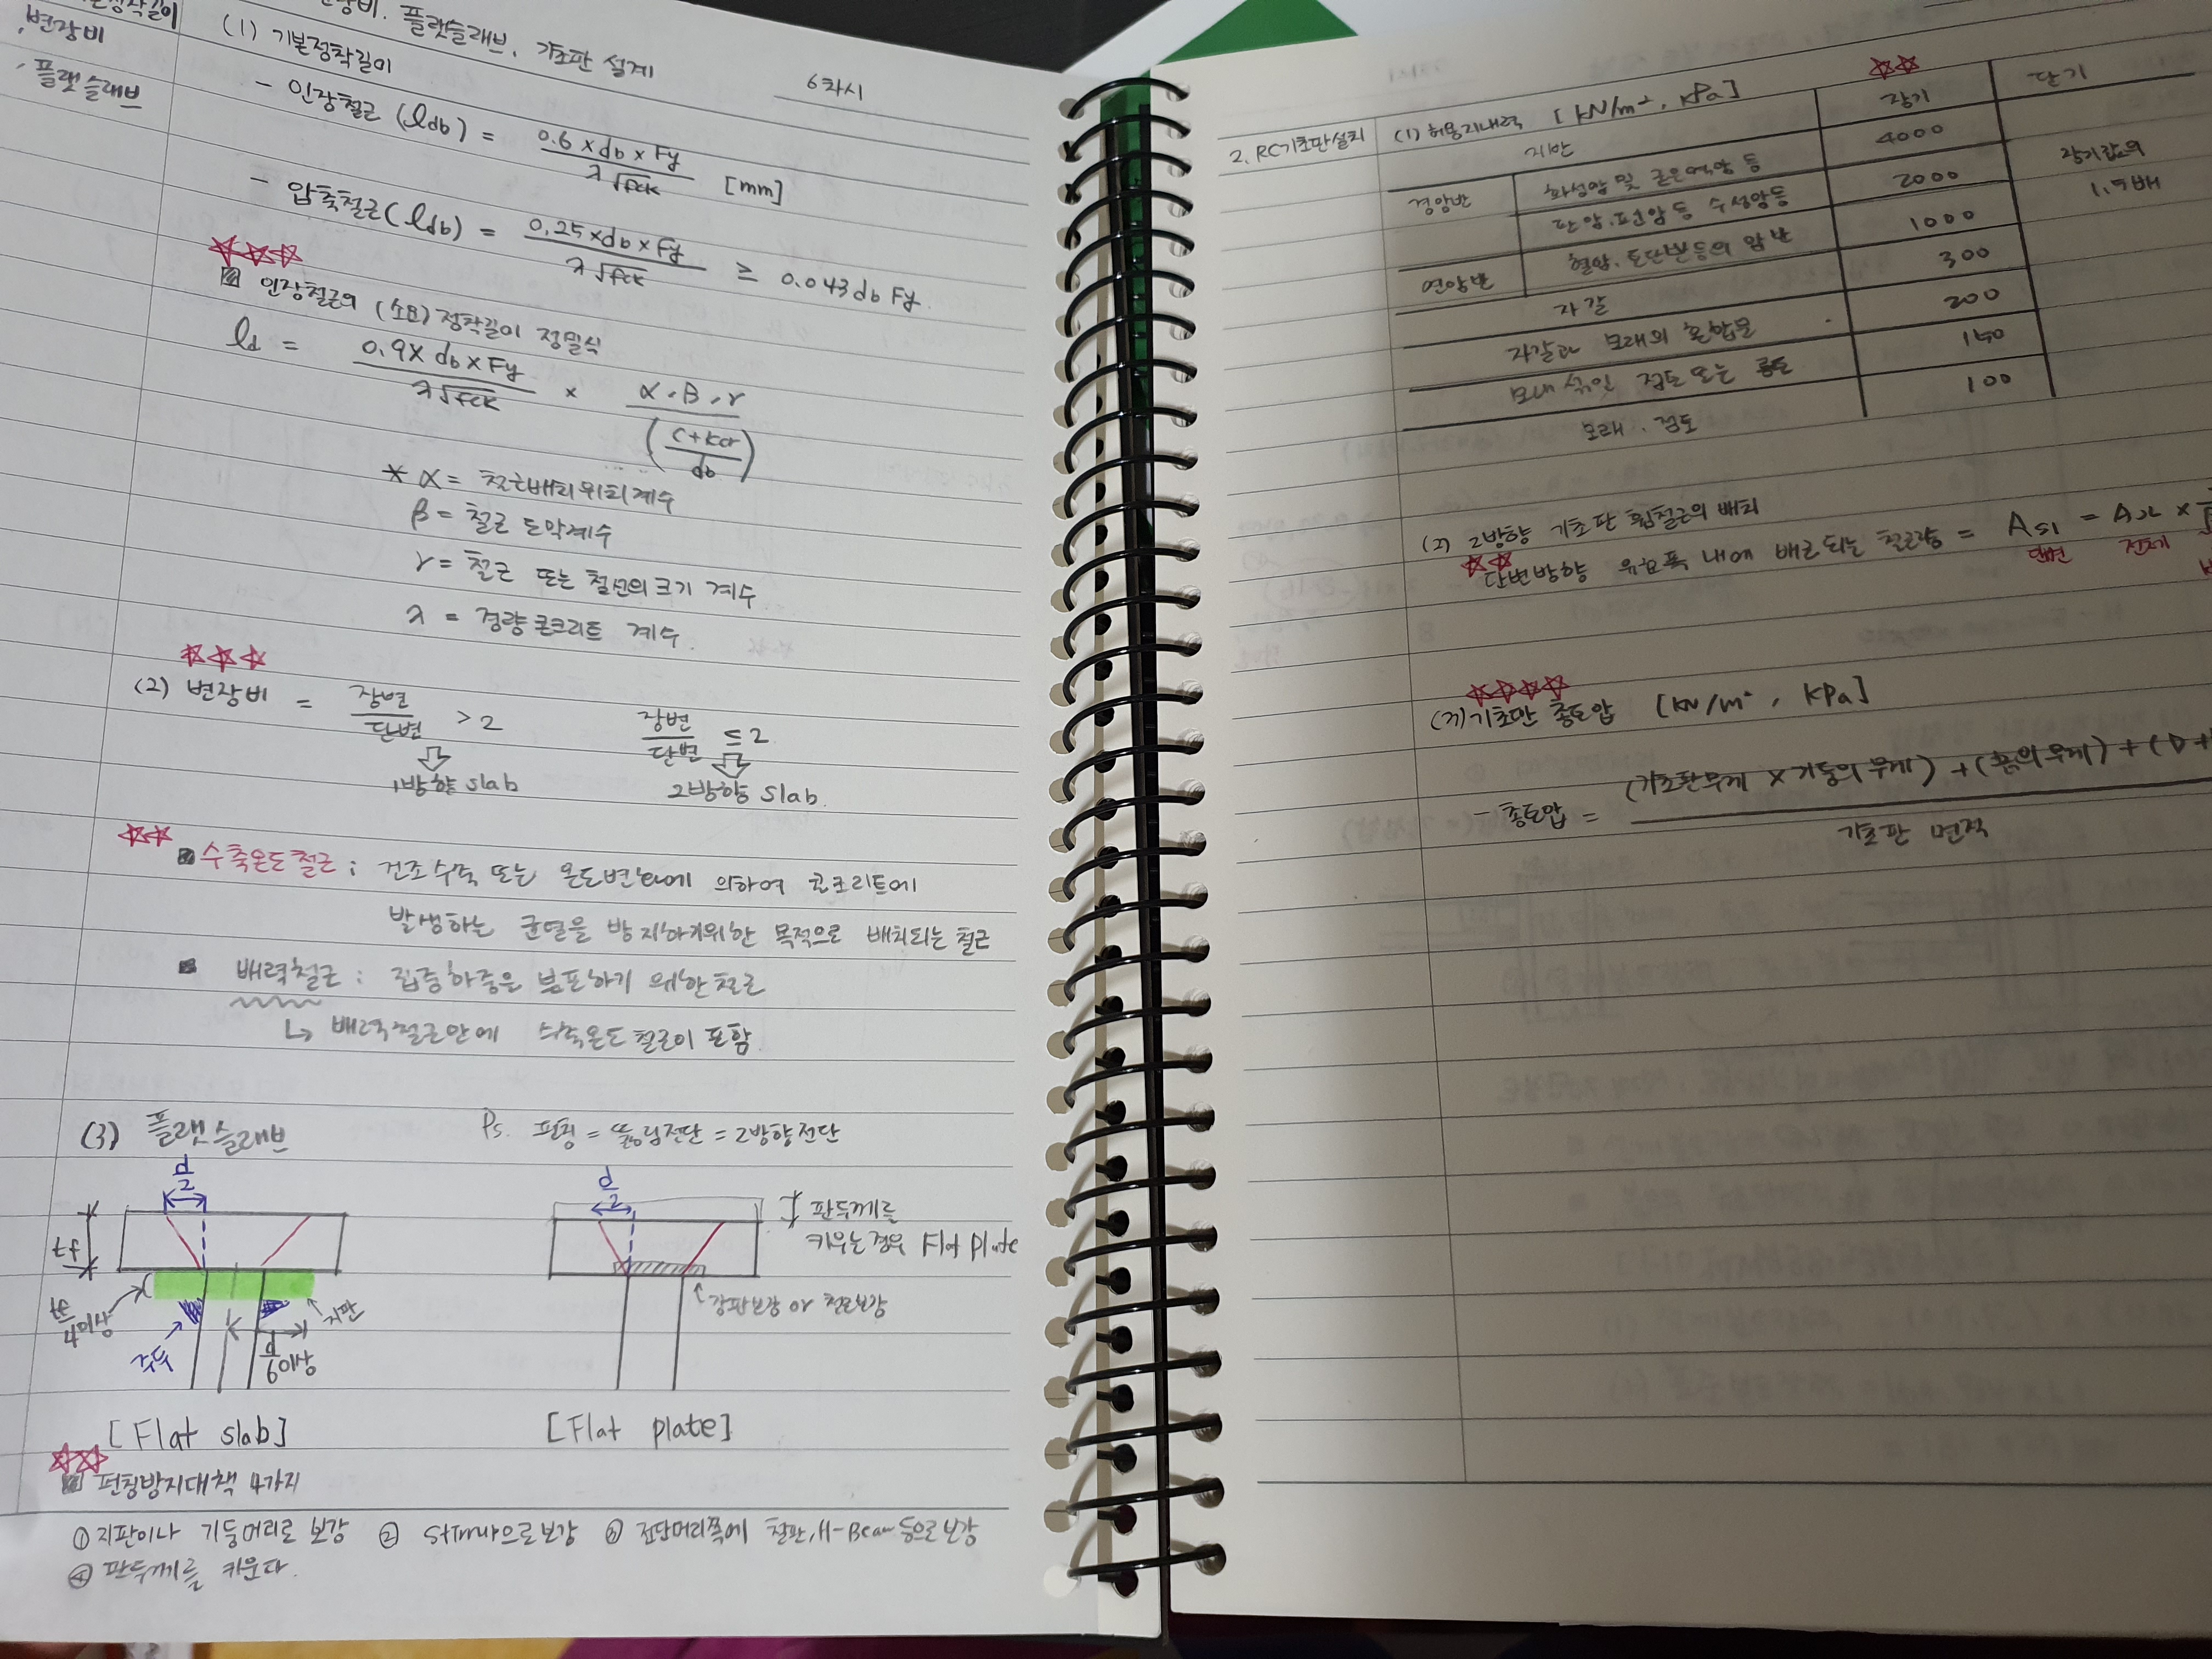 변장비
플랫슬래브
플랫슬래브, 기초판 설계
6차시
(1) 기본정착길이
- 인장철근 (ldb) = 0.6 × db × Fy / λ√fck [mm]
- 압축철근 (ldb) = 0.25 × db × Fy / λ√fck ≥ 0.043 db Fy.
☆☆☆
인장철근의 (소요) 정착길이 정밀식
ld = 0.9 × db × Fy / λ√fck × α.β.γ / ((c+Kcr) / db)
* α = 철근배치위치계수
β = 철근 도막계수
γ = 철근 또는 철선의 크기 계수
λ = 경량콘크리트 계수.
☆☆☆
(2) 변장비 = 장변/단변 > 2 장변/단변 ≤ 2
1방향 slab 2방향 slab.
☆☆
수축온도철근 : 건조수축 또는 온도변화에 의하여 콘크리트에
발생하는 균열을 방지하기위한 목적으로 배치되는 철근
배력철근 : 집중하중을 분포하기 위한 철근
↳ 배력철근안에 수축온도철근이 포함.
(3) 플랫슬래브 Ps. 펀칭 = 뚫림전단 = 2방향전단
d/2
tf
tf/4 이상
주두
지판
d/6 이상
[Flat slab]
d/2
판두께를
키우는경우 Flat plate
강판보강 or 철근보강
[Flat plate]
☆☆
펀칭방지대책 4가지
① 지판이나 기둥머리로 보강 ② Stirrup으로보강 ③ 전단머리쪽에 철판, H-Beam 등으로 보강
④ 판두께를 키운다.
2. RC기초판설치 (1) 허용지내력 [kN/m², kPa] ☆☆
지반 장기 단기
경암반 화성암 및 굳은역암 등 4000 장기값의
판암, 편암 등 수성암등 2000 1.5배
연암반 혈암, 토단반등의 암반 1000
자갈 300
자갈과 모래의 혼합물 200
모래 섞인 점토 또는 롬토 150
모래, 점토 100
(2) 2방향 기초판 휨철근의 배치
☆☆
단변방향 유효폭 내에 배근되는 철근량 = As1 = AsL ×
단변 전체
☆☆☆☆
(3) 기초판 총토압 [kN/m², KPa]
- 총토압 = (기초판무게 × 기둥의 무게) + (흙의 무게) + (D +
기초판 면적